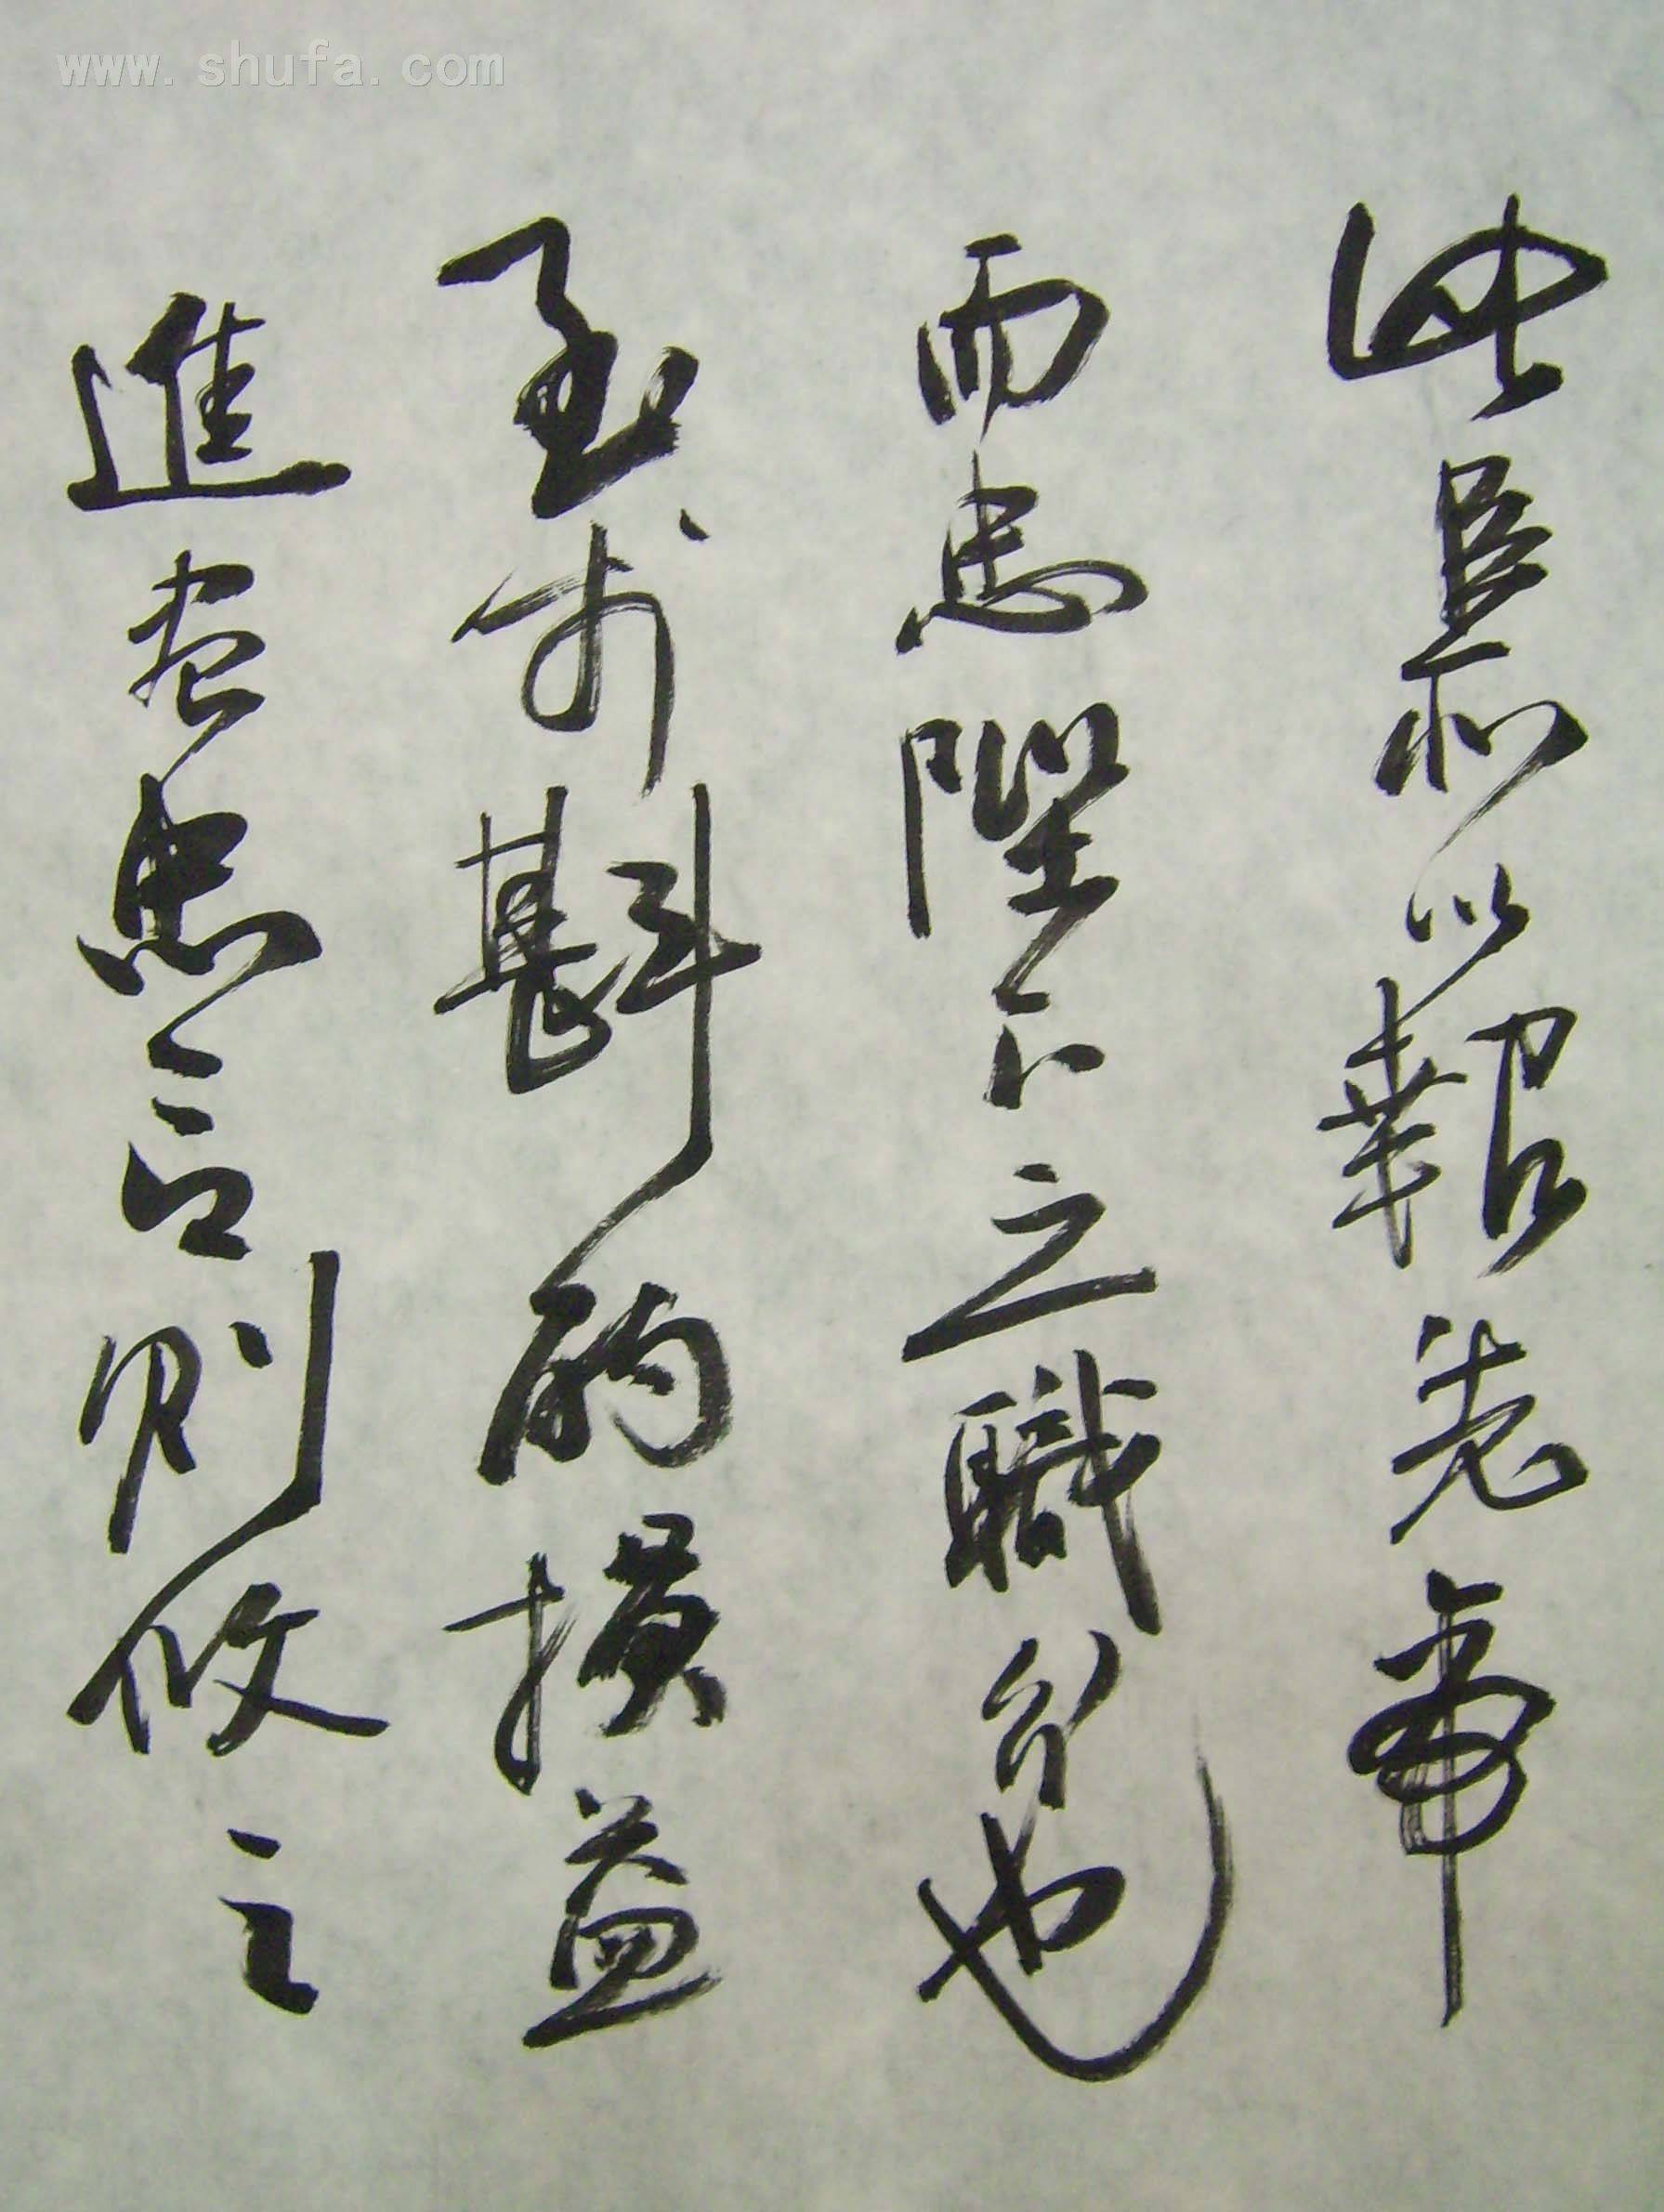 www.shufa.com
此臣所以報先帝
而忠陛下之職分也
至於斟酌損益
進盡忠言則攸之